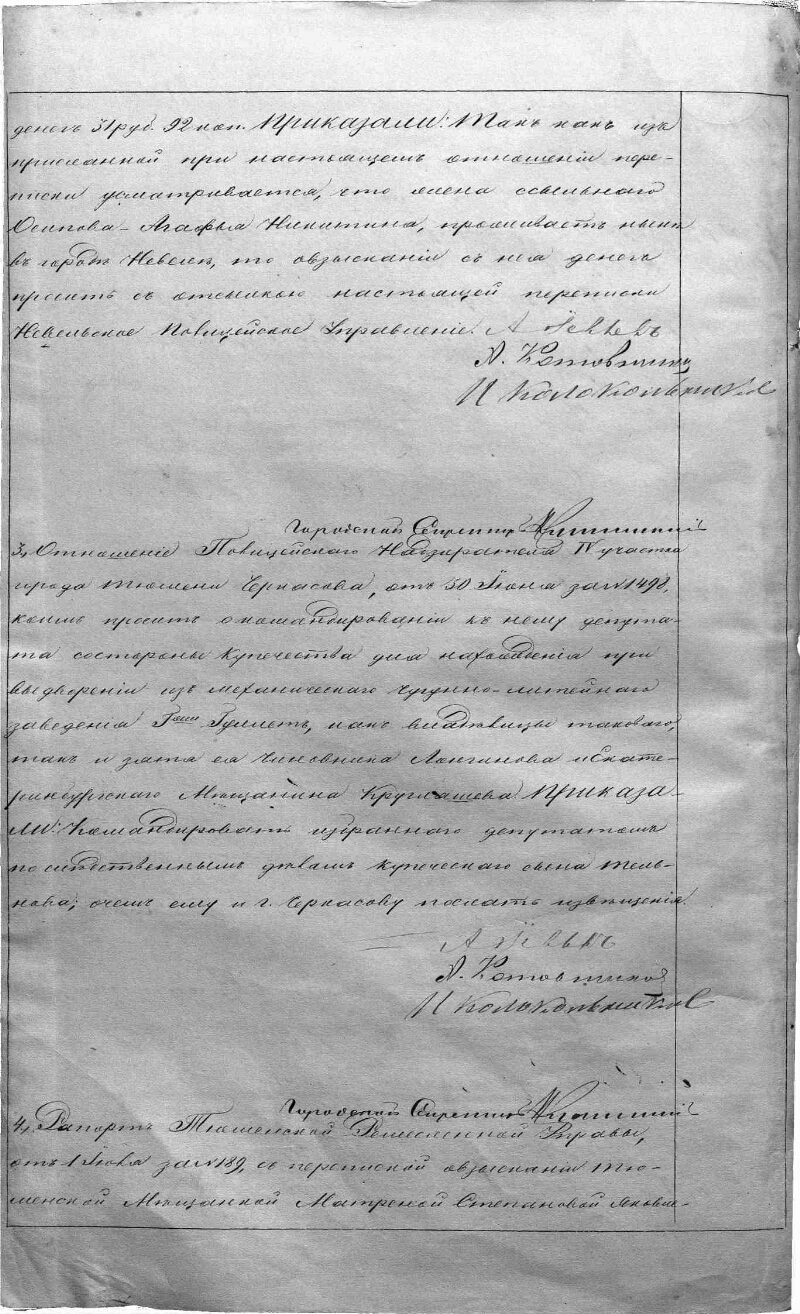 денегъ 31 руб. 92 коп. Приказали: Такъ какъ изъ
присланной при настоящемъ отношеніи пере-
писки усматривается, что жена ссыльнаго
Осипова - Агафья Никитина, проживаетъ нынѣ
въ городѣ Невелѣ, то о взысканіи съ нея денегъ
просить съ отсылкою настоящей переписки
Невельское Полицейское Управленіе.
И Колокольниковъ
Городской Секретарь
3, Отношеніе Полицейскаго Надзирателя IV участка
города Тюмени Черкасова, отъ 30 Іюня за № 1498,
коимъ проситъ о командированіи къ нему депута-
та со стороны купечества для нахожденія при
выдвореніи изъ механическаго чугунно-литейнаго
заведенія Г-жи Гуллетъ, какъ владѣлицы таковаго,
такъ и зятя ея Чиновника Лонгинова и Екате-
ринбургскаго Мѣщанина Круглашева Приказа-
ли: Командировать избраннаго депутатомъ
по слѣдственнымъ дѣламъ купеческаго сына Тель-
нова; о чемъ ему и г. Черкасову послать извѣщенія.
И Колокольниковъ
Городской Секретарь
4, Рапортъ Тюменской Ремесленной Управы,
отъ 1 Іюля за № 189, съ перепиской о взысканіи Тю-
менской Мѣщанкой Матреной Степановой Яковле-